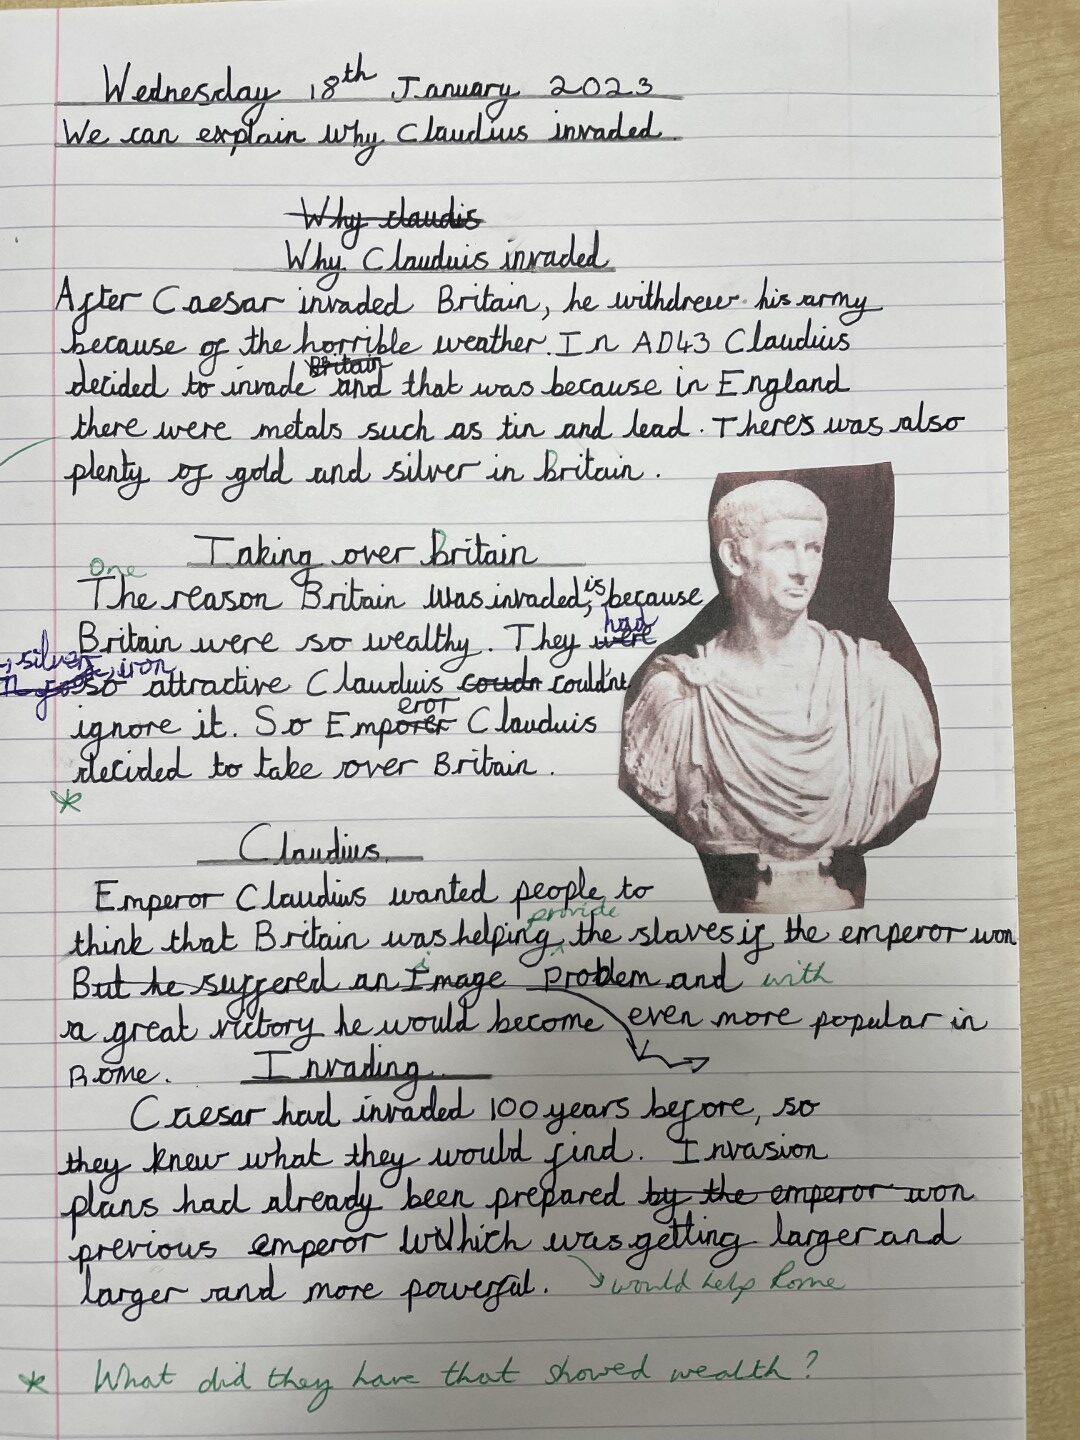 Wednesday 18th January 2023
We can explain why Claudius invaded
Why claudis
Why Clauduis invaded
After Caesar invaded Britain, he withdrew his army
because of the horrible weather. In AD43 Claudius
Britain
decided to invade and that was because in England
there were metals such as tin and lead. There's was also
plenty of gold and silver in Britain.
Taking over Britain
One
The reason Britain was invaded, is because
had
Britain were so wealthy. They were
, silver, iron
so attractive Clauduis coudn could'nt
eror
ignore it. So Emporer Clauduis
decided to take over Britain.
*
Claudius
Emperor Claudius wanted people to
provide
think that Britain was helping the slaves if the emperor won
But he suffered an Image problem and with
a great victory he would become even more popular in
Rome. Invading
Caesar had invaded 100 years before, so
they knew what they would find. Invasion
plans had already been prepared by the emperor won
previous emperor which was getting larger and
larger and more powerful. would help Rome
* What did they have that showed wealth?